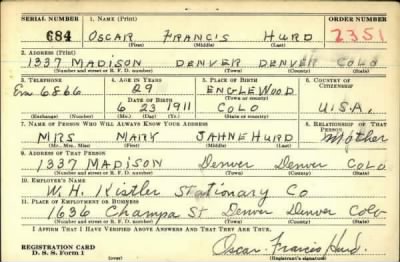 SERIAL NUMBER 1. NAME (Print) ORDER NUMBER
684 OSCAR FRANCIS HURD 2351
(First) (Middle) (Last)
2. ADDRESS (Print)
1337 MADISON DENVER DENVER COLO
(Number and street or R. F. D. number) (Town) (County) (State)
3. TELEPHONE 4. AGE IN YEARS 5. PLACE OF BIRTH 6. COUNTRY OF CITIZENSHIP
Em 6566 29 ENGLEWOOD
DATE OF BIRTH (Town or county)
6 23 1911 COLO U.S.A.
(Exchange) (Number) (Mo.) (Day) (Yr.) (State or country)
7. NAME OF PERSON WHO WILL ALWAYS KNOW YOUR ADDRESS 8. RELATIONSHIP OF THAT PERSON
MRS MARY JAHNE HURD Mother
(Mr., Mrs., Miss) (First) (Middle) (Last)
9. ADDRESS OF THAT PERSON
1337 MADISON Denver Denver COLO
(Number and street or R. F. D. number) (Town) (County) (State)
10. EMPLOYER'S NAME
W. H. Kistler Stationary Co
11. PLACE OF EMPLOYMENT OR BUSINESS
1636 Champa St Denver Denver Colo
(Number and street or R. F. D. number) (Town) (County) (State)
I AFFIRM THAT I HAVE VERIFIED ABOVE ANSWERS AND THAT THEY ARE TRUE.
REGISTRATION CARD
D. S. S. Form 1 Oscar Francis Hurd.
(Registrant's signature)